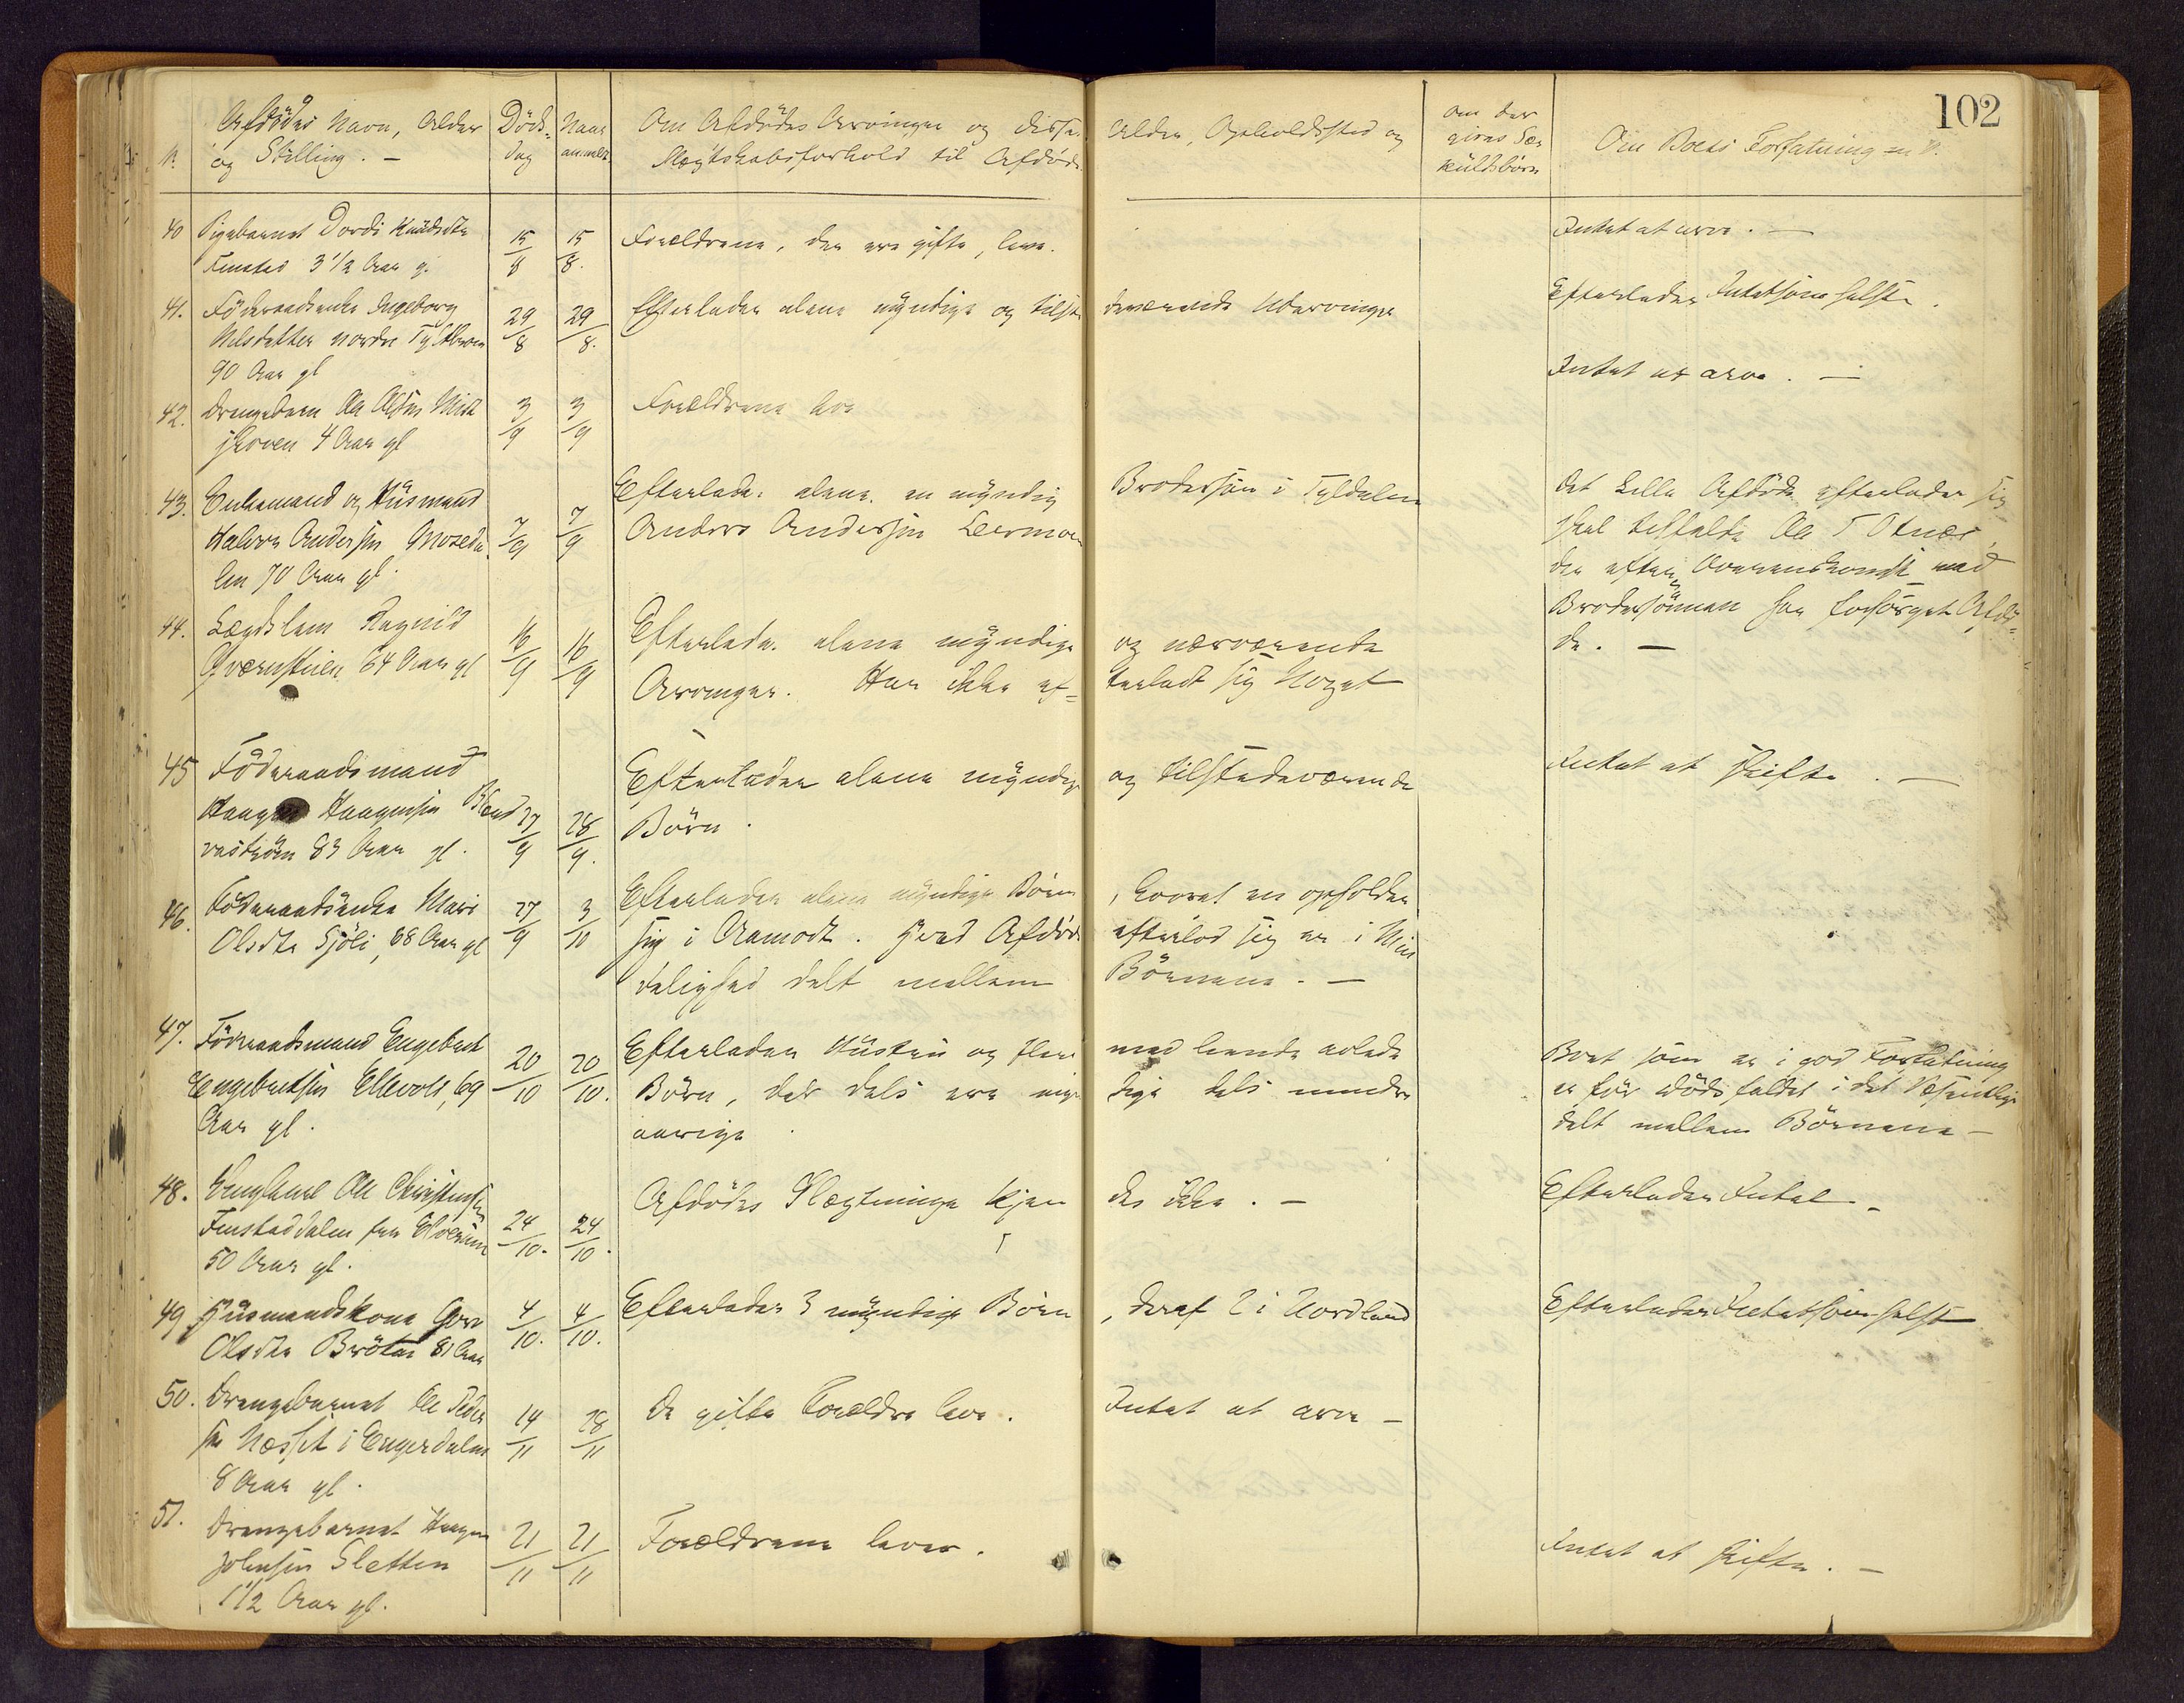 102
N. Afdødes Navn, Alder og Stilling. —
Døds-dag
Naar anmeldt
Om Afdødes Arvinger og disses Alder, Opholdssted og
Slægtskabsforhold til Afdøde
om der gives Særkuldsbørn
Om Boets Forfatning m. V.
40 Pigebarnet Dordi Knudsdtr
Finstad 3 1/2 Aar gl.
15/8 15/8.
Forældrene, der ere gifte, leve.
Intet at arve. —
41. Føderaadsenke Ingeborg
Nilsdatter nordre
90 Aar gl
29/8 29/8.
Efterlader alene myndige og tilstedeværende Udarvinger
Efterlader Intetsomhelst.
42. Drengebarn Ole Olsen
skoven 4 Aar gl
3/9 3/9
Forældrene leve
Intet at arve. —
43. Enkemand og Husmand
Halvor Andersen Moseda
len 70 Aar gl.
7/9 7/9
Efterlader alene en myndig Brodersøn i Tyldalen
Anders Andersen
Det Lille Afdøde efterlader sig
skal tilfalde Ole T Otnes,
der efter Overenskomst med
Brodersønnen har forsørget Afdø=
de. —
44. Lægdslem Ragnild
Qværnstuen 64 Aar gl
16/9 16/9
Efterlader alene myndige og nærværende
Arvinger. Har ikke ef= terladt sig Noget
45 Føderaadsmand
Haagen Haagensen
83 Aar gl.
27/9 28/9.
Efterlader alene myndige og tilstedeværende
Børn.
Intet at skifte. —
46. Føderaadsenke Mari
Olsdtr Sjøli, 68 Aar gl
27/9 3/10
Efterlader alene myndige Børn, hvoraf en opholder
sig i Aamodt. Hvad Afdøde efterlod sig er i Min
delighed delt mellem Børnene. —
47. Føderaadsmand Engebret
Engebretsen Ellevold, 69
Aar gl.
20/10 20/10.
Efterlader Hustru og flere med hende avlede
Børn, der dels ere myn dige dels mindre
aarige.
Boet som er i god Forfatning
er før Dødsfaldet i det Væsentlige
delt mellem Børnene —
48. Ungkarl Ole Christensen
Finstaddalen fra Elverum
50 Aar gl.
24/10. 24/10.
Afdødes Slægtninge kjen des ikke. —
Efterlader Intet —
49 Husmandskone Goro
Olsdtr Brøten 81 Aar
4/10. 4/10.
Efterlader 3 myndige Børn, deraf 2 i Nordland
Efterlader Intetsomhelst
50. Drengebarnet Ole Peder
sen Næsset i Engerdalen
8 Aar gl.
14/11 28/11
De gifte Forældre leve. Intet at arve —
51. Drengebarnet Haagen
Johnsen Sletten
1 1/2 Aar gl.
21/11 21/11
Forældrene lever.
Intet at skifte. —